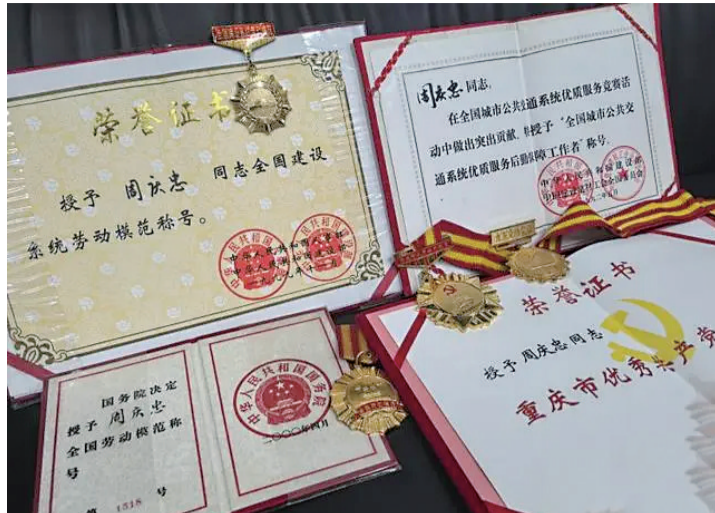 荣誉证书
授予 周庆忠 同志全国建设
系统劳动模范称号。
中华人民共和国人事部
中华人民共和国建设部
周庆忠同志,
在全国城市公共交通系统优质服务竞赛活
动中做出突出贡献,特授予“全国城市公共交
通系统优质服务后勤保障工作者”称号。
中华人民共和国建设部
国务院决定
授予 周庆忠
全国劳动模范称
号
第 1518 号
中华人民共和国国务院
二〇〇〇年四月
荣誉证书
授予周庆忠同志
重庆市优秀共产党